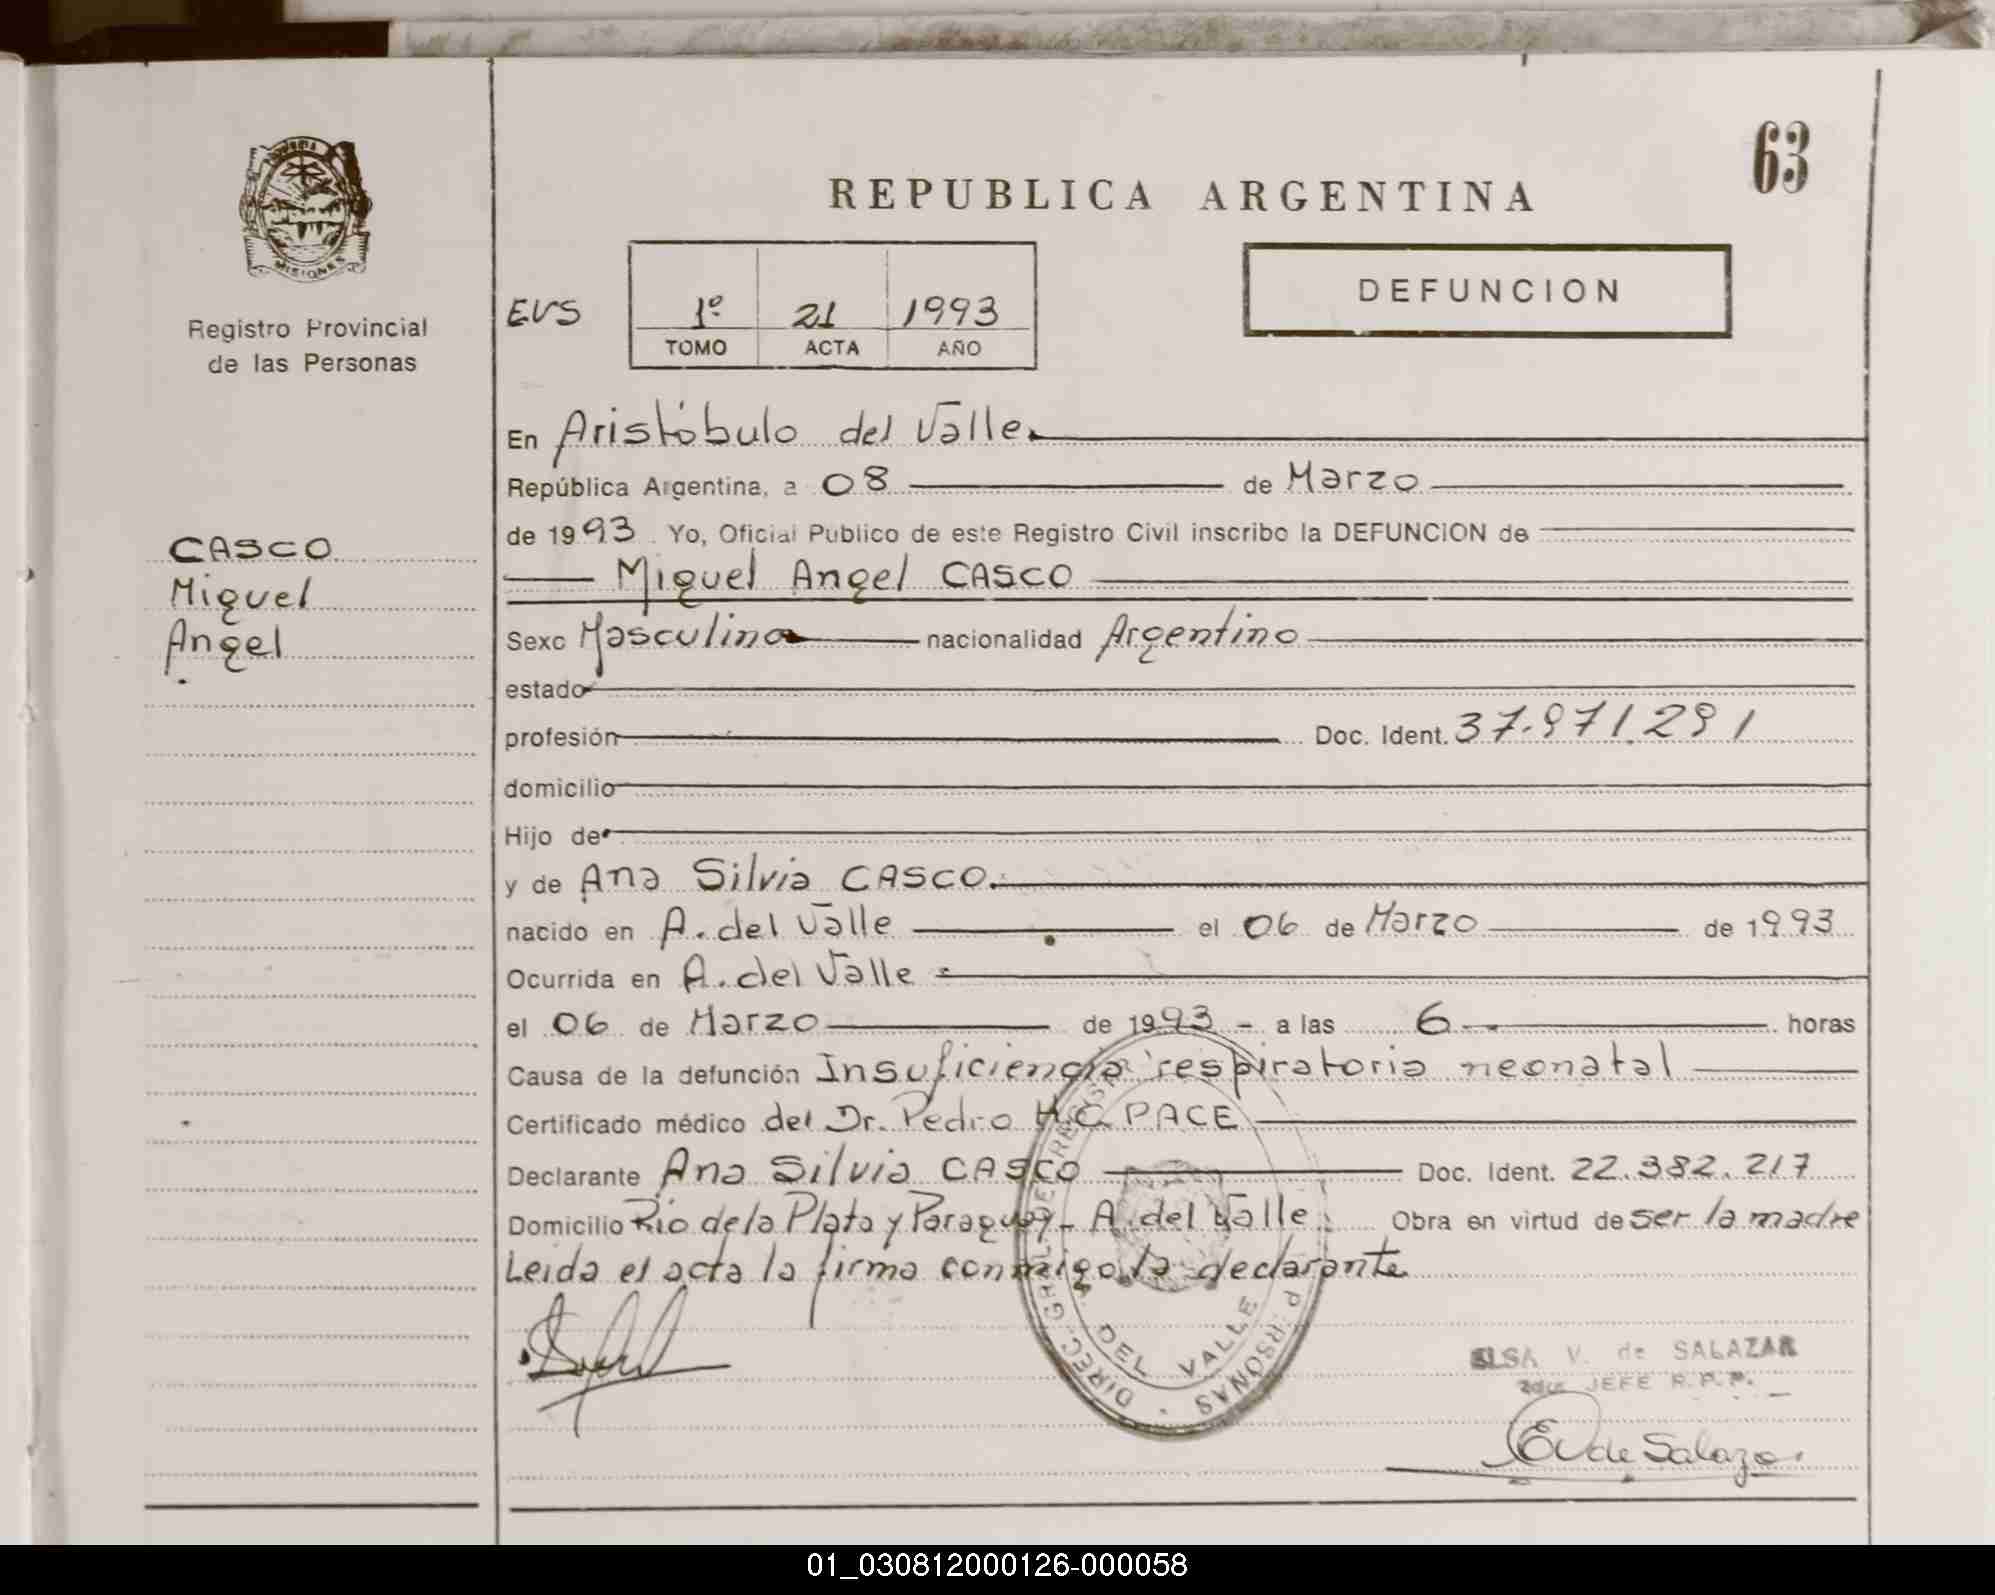 63
REPUBLICA ARGENTINA
MISIONES
Registro Provincial
de las Personas
EVS
1º 21 1993
TOMO ACTA AÑO
DEFUNCION
CASCO
Miguel
Angel
En Aristóbulo del Valle.
República Argentina, a 08 de Marzo
de 1993. Yo, Oficial Publico de este Registro Civil inscribo la DEFUNCION de
Miguel Angel CASCO
Sexo Masculino nacionalidad Argentino
estado
profesión Doc. Ident. 37.971.291
domicilio
Hijo de
y de Ana Silvia CASCO.
nacido en A. del Valle el 06 de Marzo de 1993
Ocurrida en A. del Valle
el 06 de Marzo de 1993 - a las 6 horas
Causa de la defunción Insuficiencia respiratoria neonatal
Certificado médico del Dr. Pedro H.C. PACE
Declarante Ana Silvia CASCO Doc. Ident. 22.382.217
Domicilio Rio de la Plata y Paraguay - A. del Valle. Obra en virtud de ser la madre
Leida el acta la firma conmigo la declarante
DIREC. GRAL. DE PERSONAS
DEL VALLE
ELSA V. de SALAZAR
JEFE R.P.P.
EV de Salazar
01_030812000126-000058